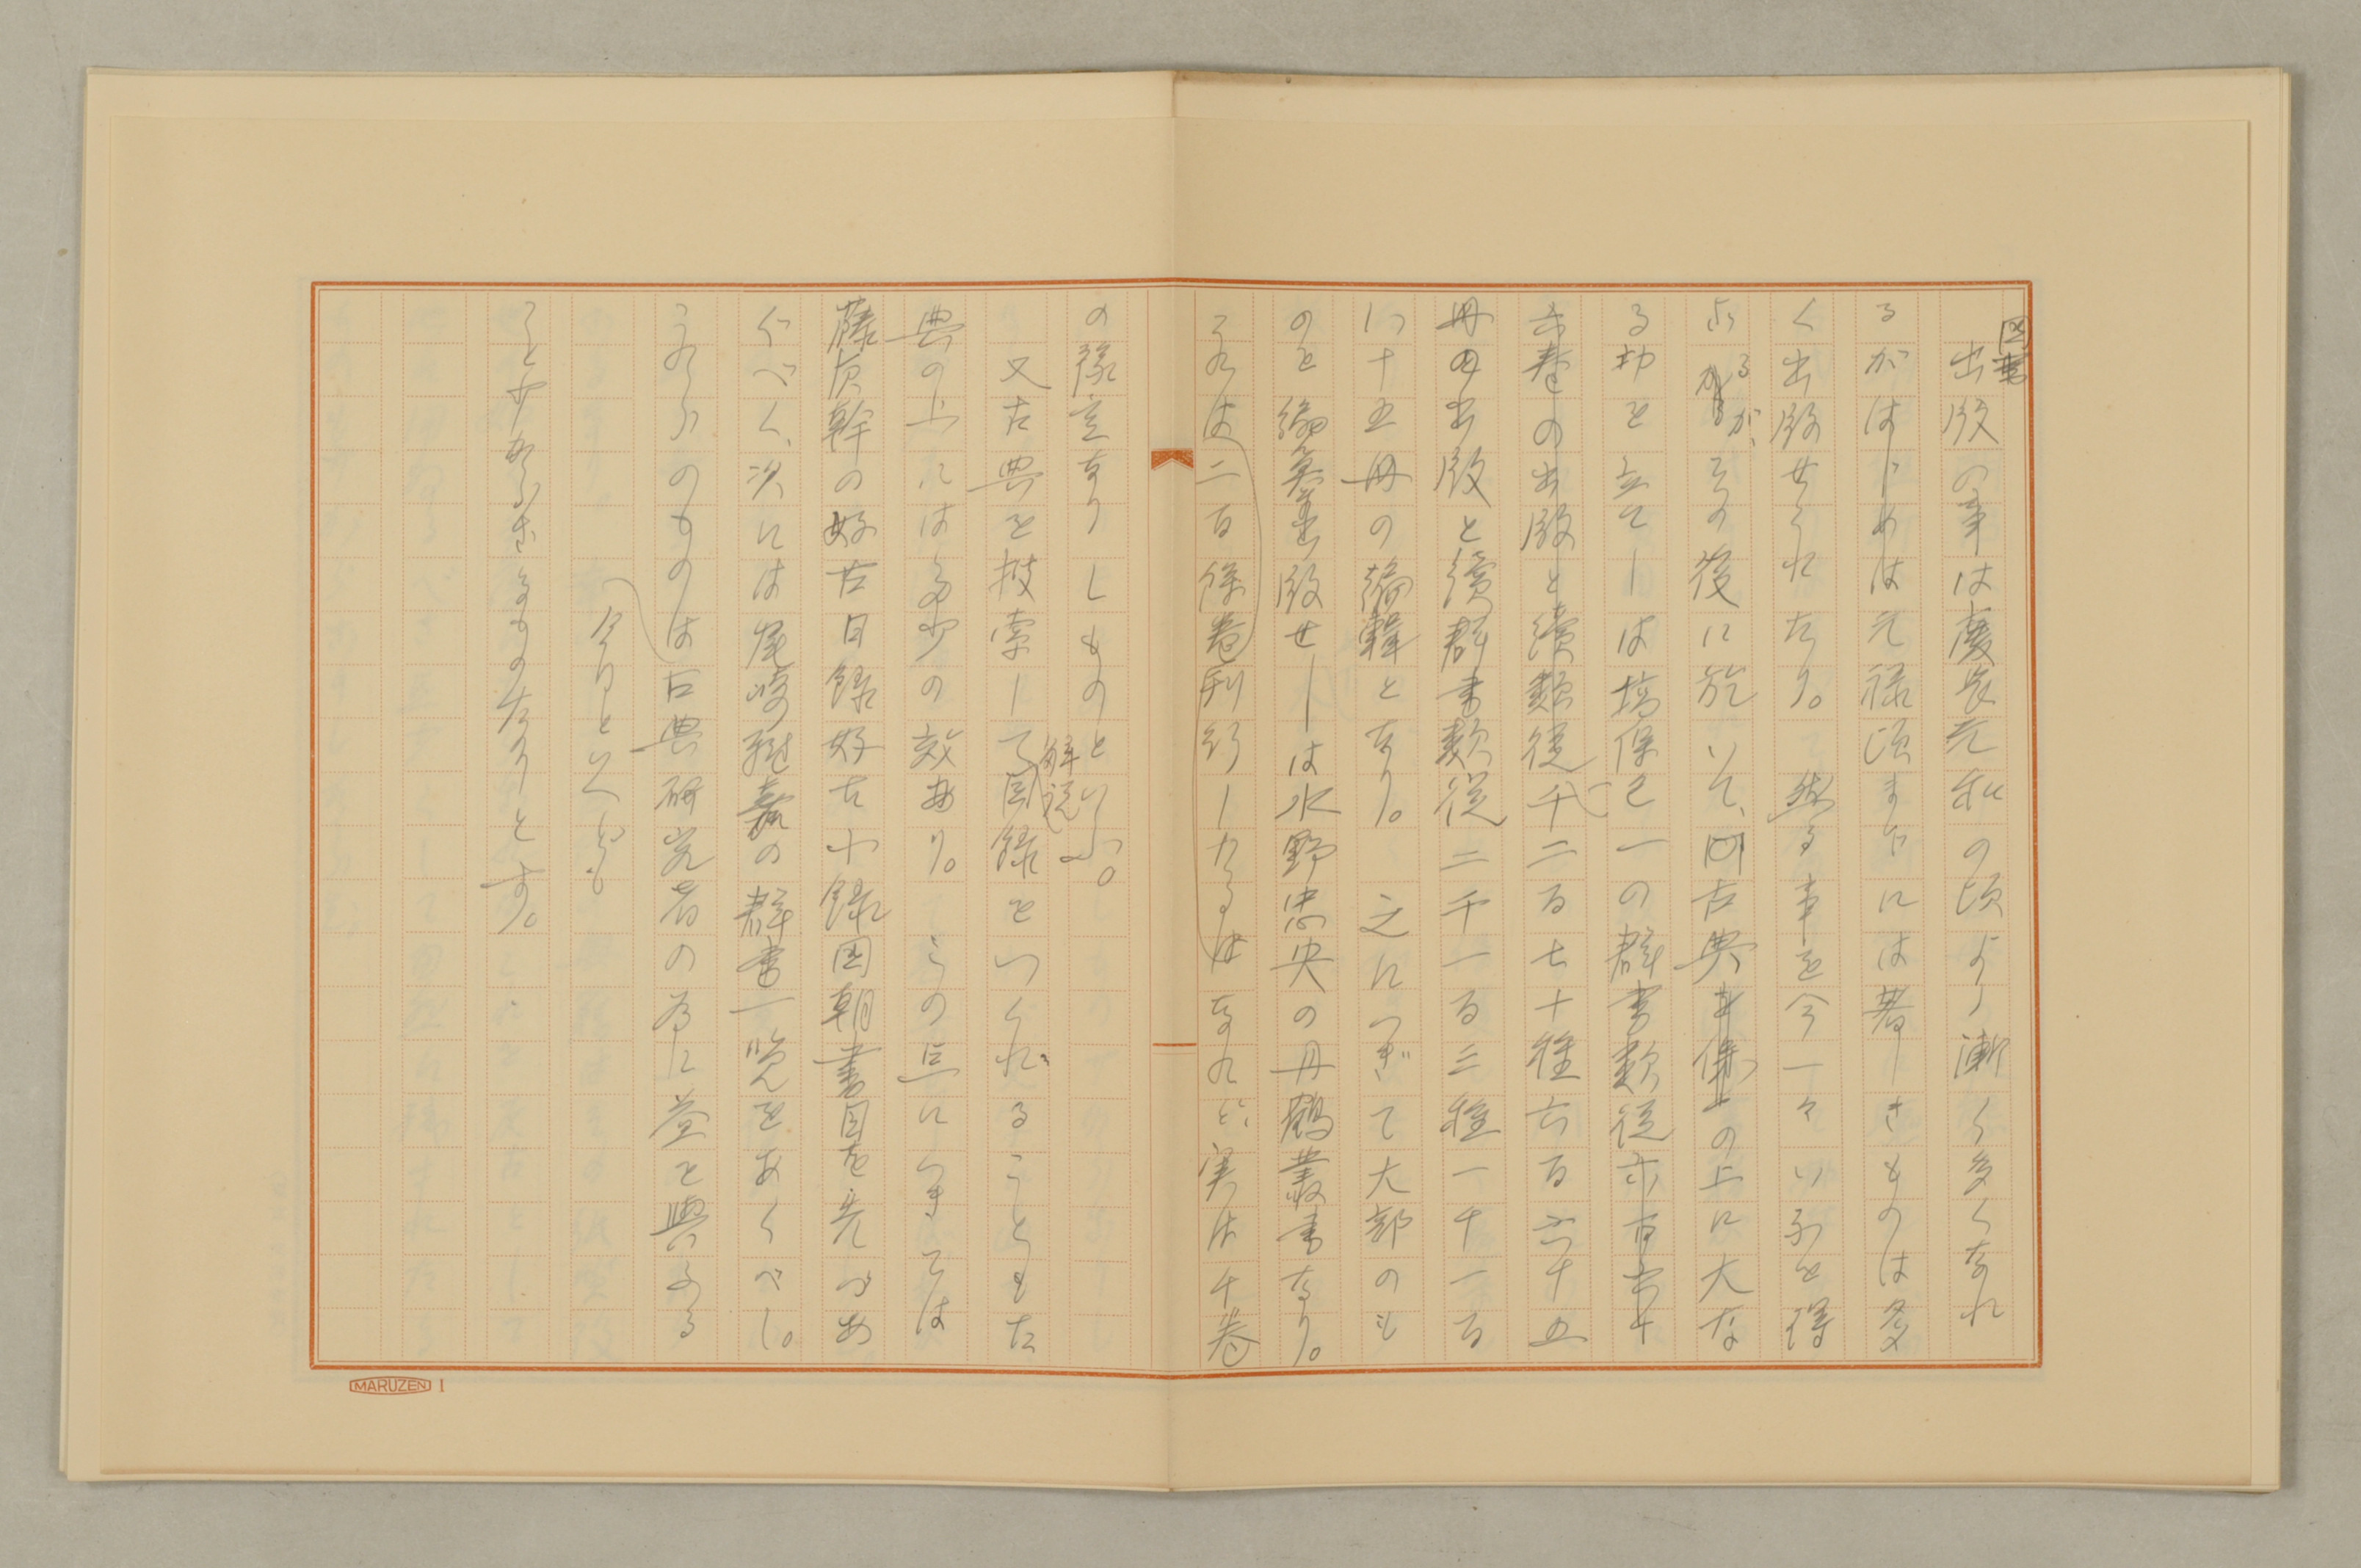 図書
出版の事は慶長元和の頃より漸く多くなれ
るがはじめは元禄頃までには著しきものは多
く出版せられたり。然る事を今一々いふを得
ざるが、その後に於いて、古典の上に大な
る功を立てしは塙保己一の群書類従
の出版と續類従千二百七十種六百六十五
冊の出版と續群書類従二千一百三種一千一百
八十五冊の編輯となり。之につぎて大部のも
のを編纂出版せしは水野忠央の丹鶴叢書なり。
それは二百餘巻刊行したるは なれど、実は千巻
の豫定なりしものといふ。
又古典を捜索して解説目録をつくれることもた
典の上には多少の效あり。この点につきては
藤原貞幹の好古目録好古小録国朝書目を先づあ
ぐべく、次には尾崎雅嘉の群書一覧をあぐべし。
これらのものは古典研究者の為に益を與ふる
今日といへども
こと少からざるものなりとす。
MARUZEN 1